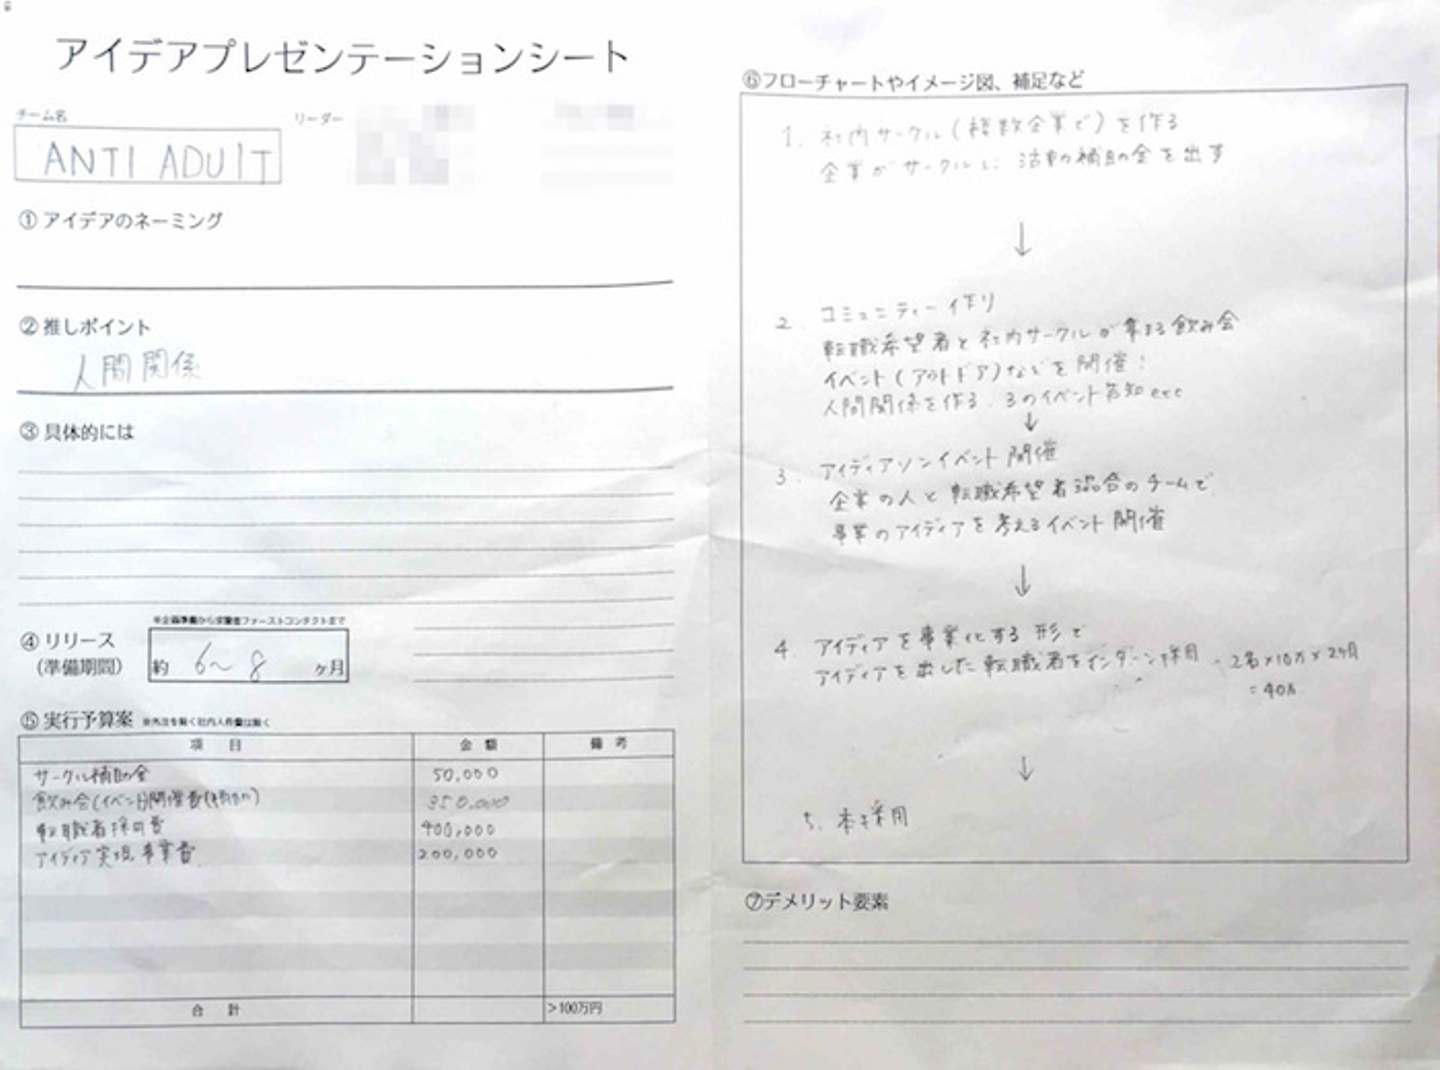 アイデアプレゼンテーションシート
チーム名
リーダー
ANTI ADUIT
①アイデアのネーミング
②推しポイント
人間関係
③具体的には
④リリース
(準備期間)
※企画準備から求職者ファーストコンタクトまで
約 6〜8 ヶ月
⑤実行予算案 ※外注を除く社内人件費は除く
項 目 金 額 備 考
サークル補助金 50,000
飲み会(イベント)開催費 350,000
転職者採用費 400,000
アイディア実現事業費 200,000
合 計 >100万円
⑥フローチャートやイメージ図、補足など
1. 社内サークル(複数企業で)を作る
企業がサークルに活動の補助金を出す
↓
2. コミュニティー作り
転職希望者と社内サークルが集まる飲み会
イベント(アウトドア)などを開催!
人間関係を作る. 3のイベント告知etc
↓
3. アイディアソンイベント開催
企業の人と転職希望者混合のチームで
事業のアイディアを考えるイベント開催
↓
4. アイディアを事業化する形で
アイディアを出した転職者をインターン採用
2名×10万×2ヶ月
=40万
↓
5. 本採用
⑦デメリット要素